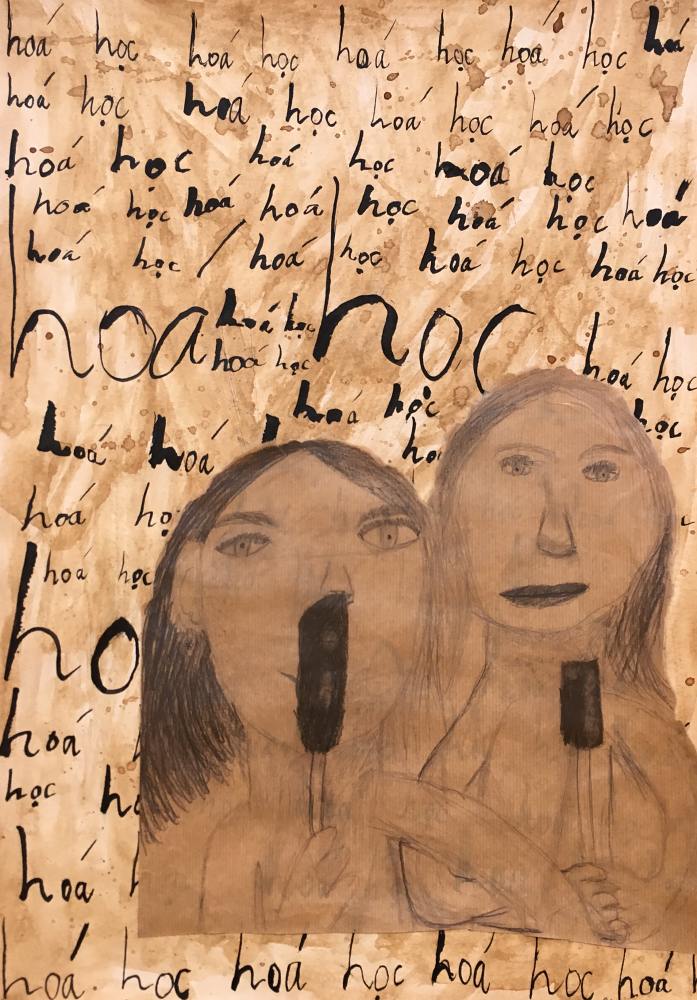 hoá học hoá học hoá học hoá học hoá
hoá học hoá học hoá học hoá học
hoá học hoá học hoá học
hoá học hoá hoá học hoá học hoá
hoá học / hoá học hoá học hoá học
hoá học
hoá học
hoá học
hoá học
hoá học
học
hoá hoá
hoá
hoá
hoá học
hoá
học
hoá
hoá học hoá học hoá học hoá